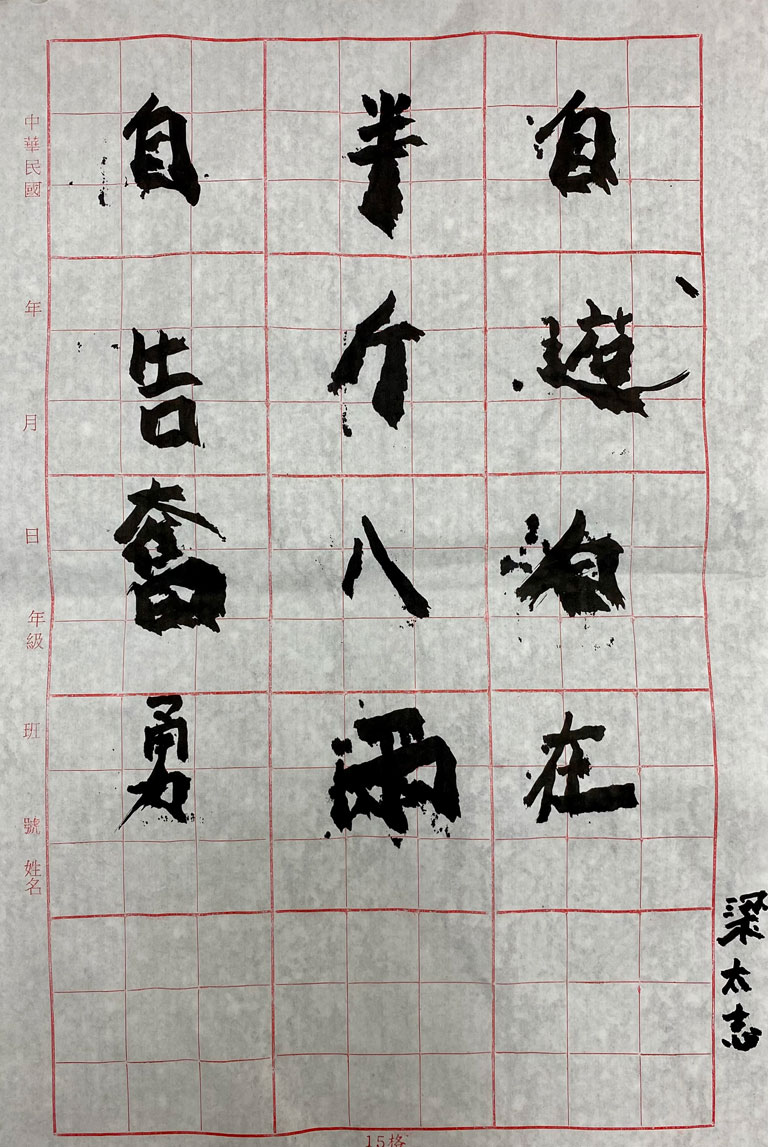 自遊為在
半个八兩
自告奮勇
梁太志
中華民國 年 月 日 年級 班 號 姓名
15格